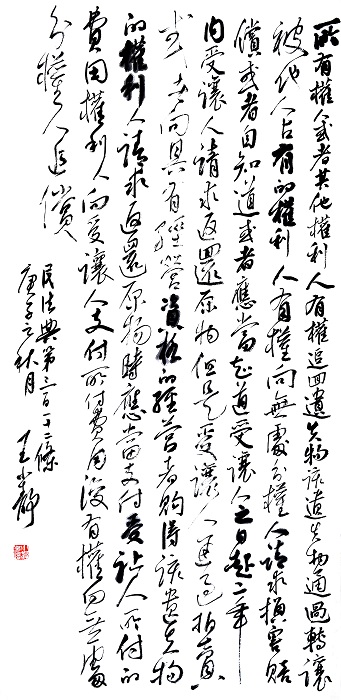 所有權人或者其他權利人有權追回遺失物該遺失物通過轉讓
被他人占有的權利人有權向無處分權人請求損害賠
償或者自知道或者應當知道受讓人之日起二年
内受讓人請求返還原物但是受讓人通過拍賣
或者向具有經營資格的經營者購得該遺失物
的權利人請求返還原物時應當支付受让人所付的
費用權利人向受讓人支付所付費用後有權向無處
分權人追償
民法典第三百一十二條
庚子之秋月
王 靜